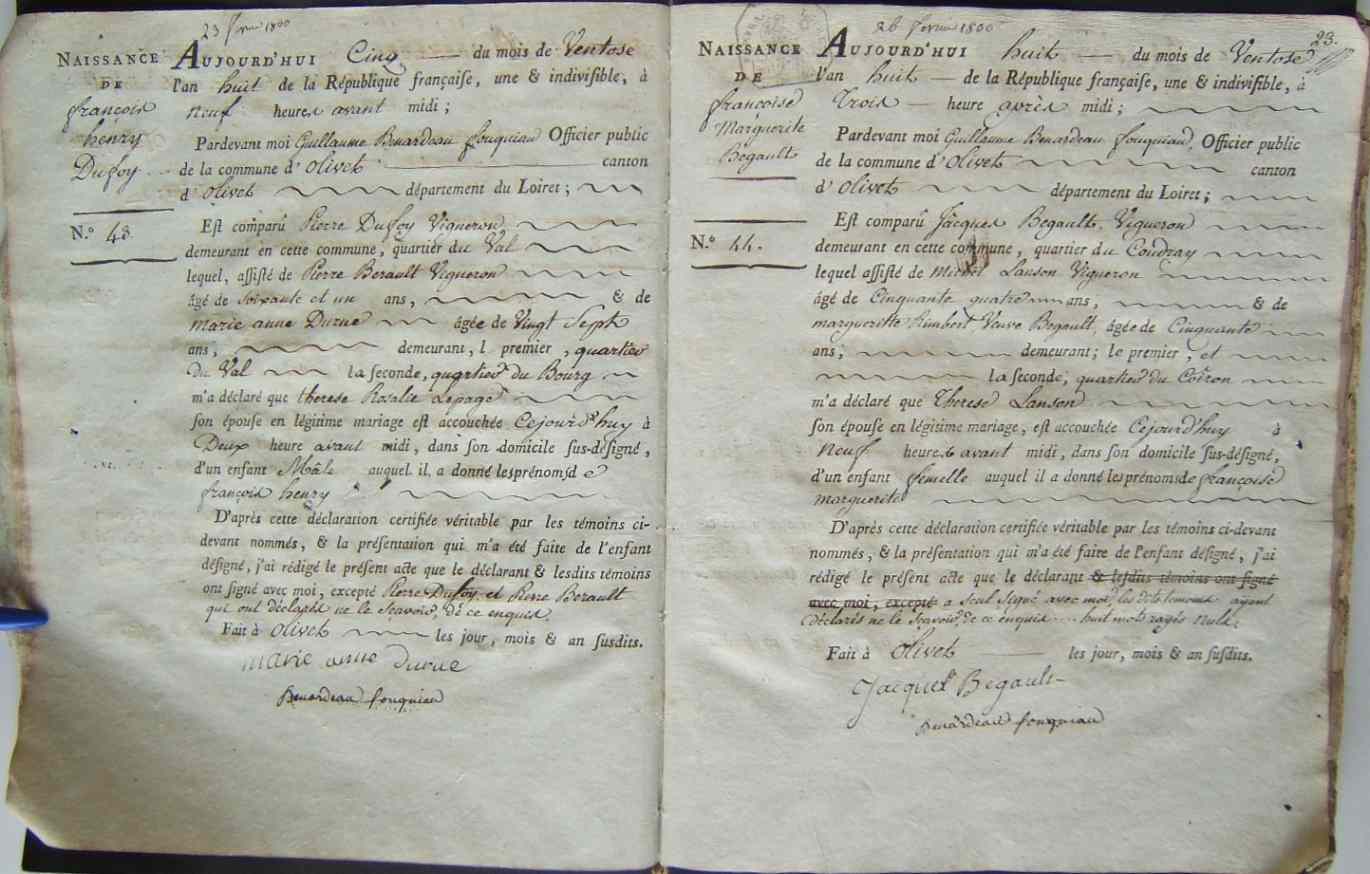 23 fevrier 1800
NAISSANCE
DE
françois
henry
Dufoy
N.º 43.
AUJOURD'HUI Cinq du mois de Ventose
l'an huit de la République françaiſe, une & indiviſible, à
neuf heures avant midi ;
Pardevant moi Guillaume Benardeau fouquiau Officier public
de la commune d'Olivet canton
d'Olivet département du Loiret ;
Eſt comparû Pierre Dufoy Vigneron
demeurant en cette commune, quartier du Val
lequel, aſſiſté de Pierre Berault Vigneron
âgé de Soixante et un ans, & de
marie anne Durue âgée de Vingt Sept
ans, demeurant, l premier, quartier
du Val la ſeconde, quartier du Bourg
m'a déclaré que therese Rosalie Lepage
ſon épouſe en légitime mariage eſt accouchée Cejourd'huy à
Deux heure avant midi, dans ſon domicile ſus-déſigné,
d'un enfant Mâle auquel il a donné leſprénomſd e
françois henry
D'après cette déclaration certifiée véritable par les témoins ci-
devant nommés, & la préſentation qui m'a été faite de l'enfant
déſigné, j'ai rédigé le préſent acte que le déclarant & leſdits témoins
ont ſigné avec moi, excepté Pierre Dufoy et Pierre Berault
qui ont déclaré ne le Sçavoir, de ce enquis.
Fait à Olivet les jour, mois & an ſuſdits.
marie anne Durue
Benardeau fouquiau
26 fevrier 1800
23.
NAISSANCE
DE
francoise
Marguerite
Begault
N.º 44.
AUJOURD'HUI huit du mois de Ventose
l'an huit de la République françaiſe, une & indiviſible, à
Trois heure après midi ;
Pardevant moi Guillaume Benardeau fouquiau, Officier public
de la commune d'Olivet canton
d'Olivet département du Loiret ;
Eſt comparû Jacques Begault Vigneron
demeurant en cette commune, quartier du Coudray
lequel aſſiſté de Michel Lanson Vigneron
âgé de Cinquante quatre ans, & de
margueritte Humbert Veuve Begault, âgée de Cinquante
ans ; demeurant ; le premier, et
la ſeconde, quartier du Coiron
m'a déclaré que Therese Lanson
ſon épouſe en légitime mariage, eſt accouchée Cejourd'huy à
neuf heures avant midi, dans ſon domicile ſus-déſigné,
d'un enfant femelle auquel il a donné leſprénomſde françoise
marguerite
D'après cette déclaration certifiée véritable par les témoins ci-devant
nommés, & la préſentation qui m'a été faite de l'enfant déſigné, j'ai
rédigé le préſent acte que le déclarant & leſdits témoins ont ſigné
avec moi, excepté a Seul Signé avec moi, les dits temoins ayant
Déclarés ne le Sçavoir, de ce enquis huit mots rayés nuls.
Fait à Olivet les jour, mois & an ſuſdits.
Jacques Begault
Benardeau fouquiau